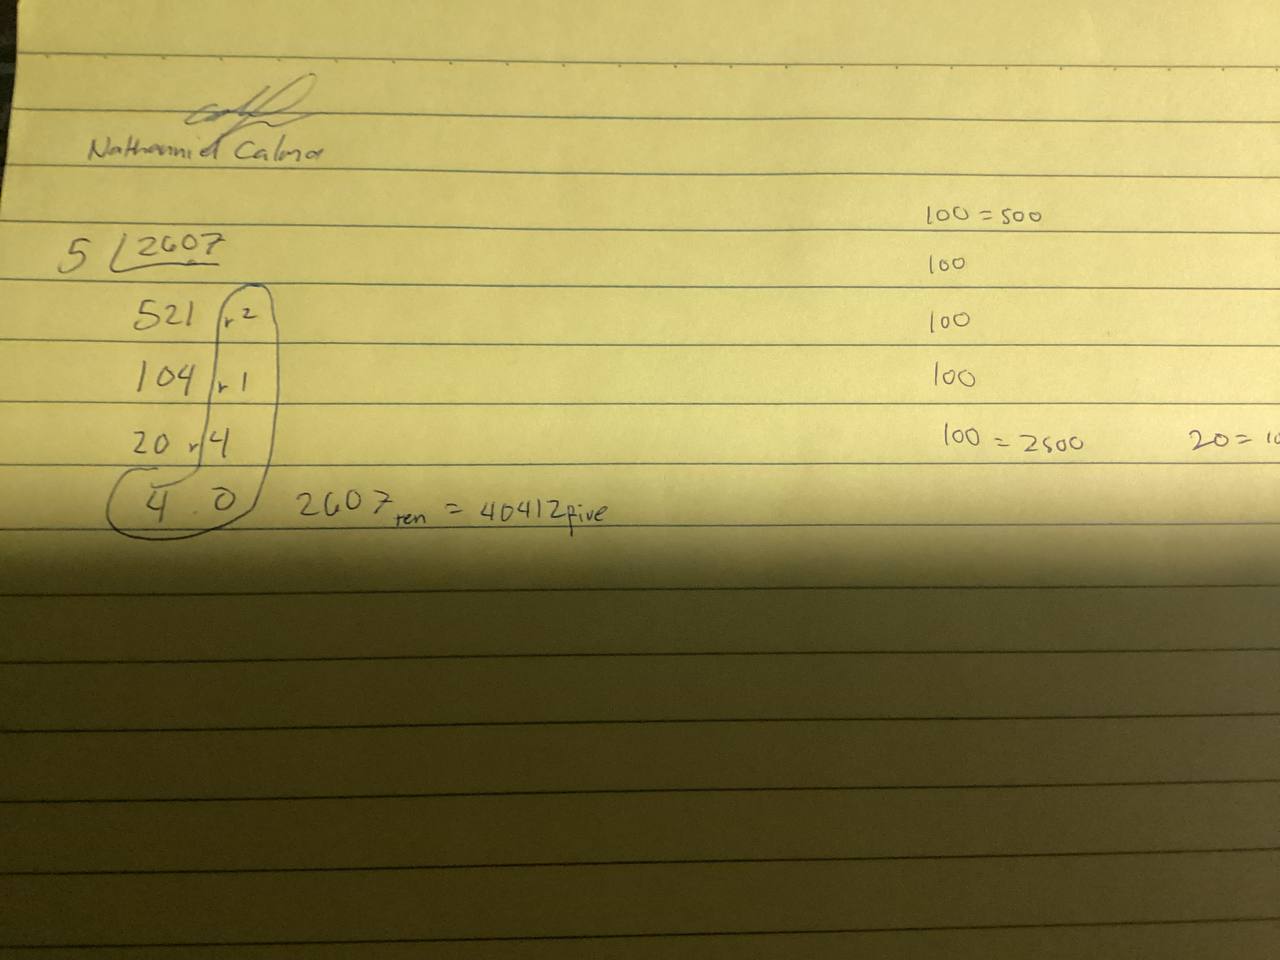 5 2607
521 r 2
104 r 1
20 r 4
4 0 2607 ten = 40412 five
100 = 500
100
100
100
100 = 2500 20 =